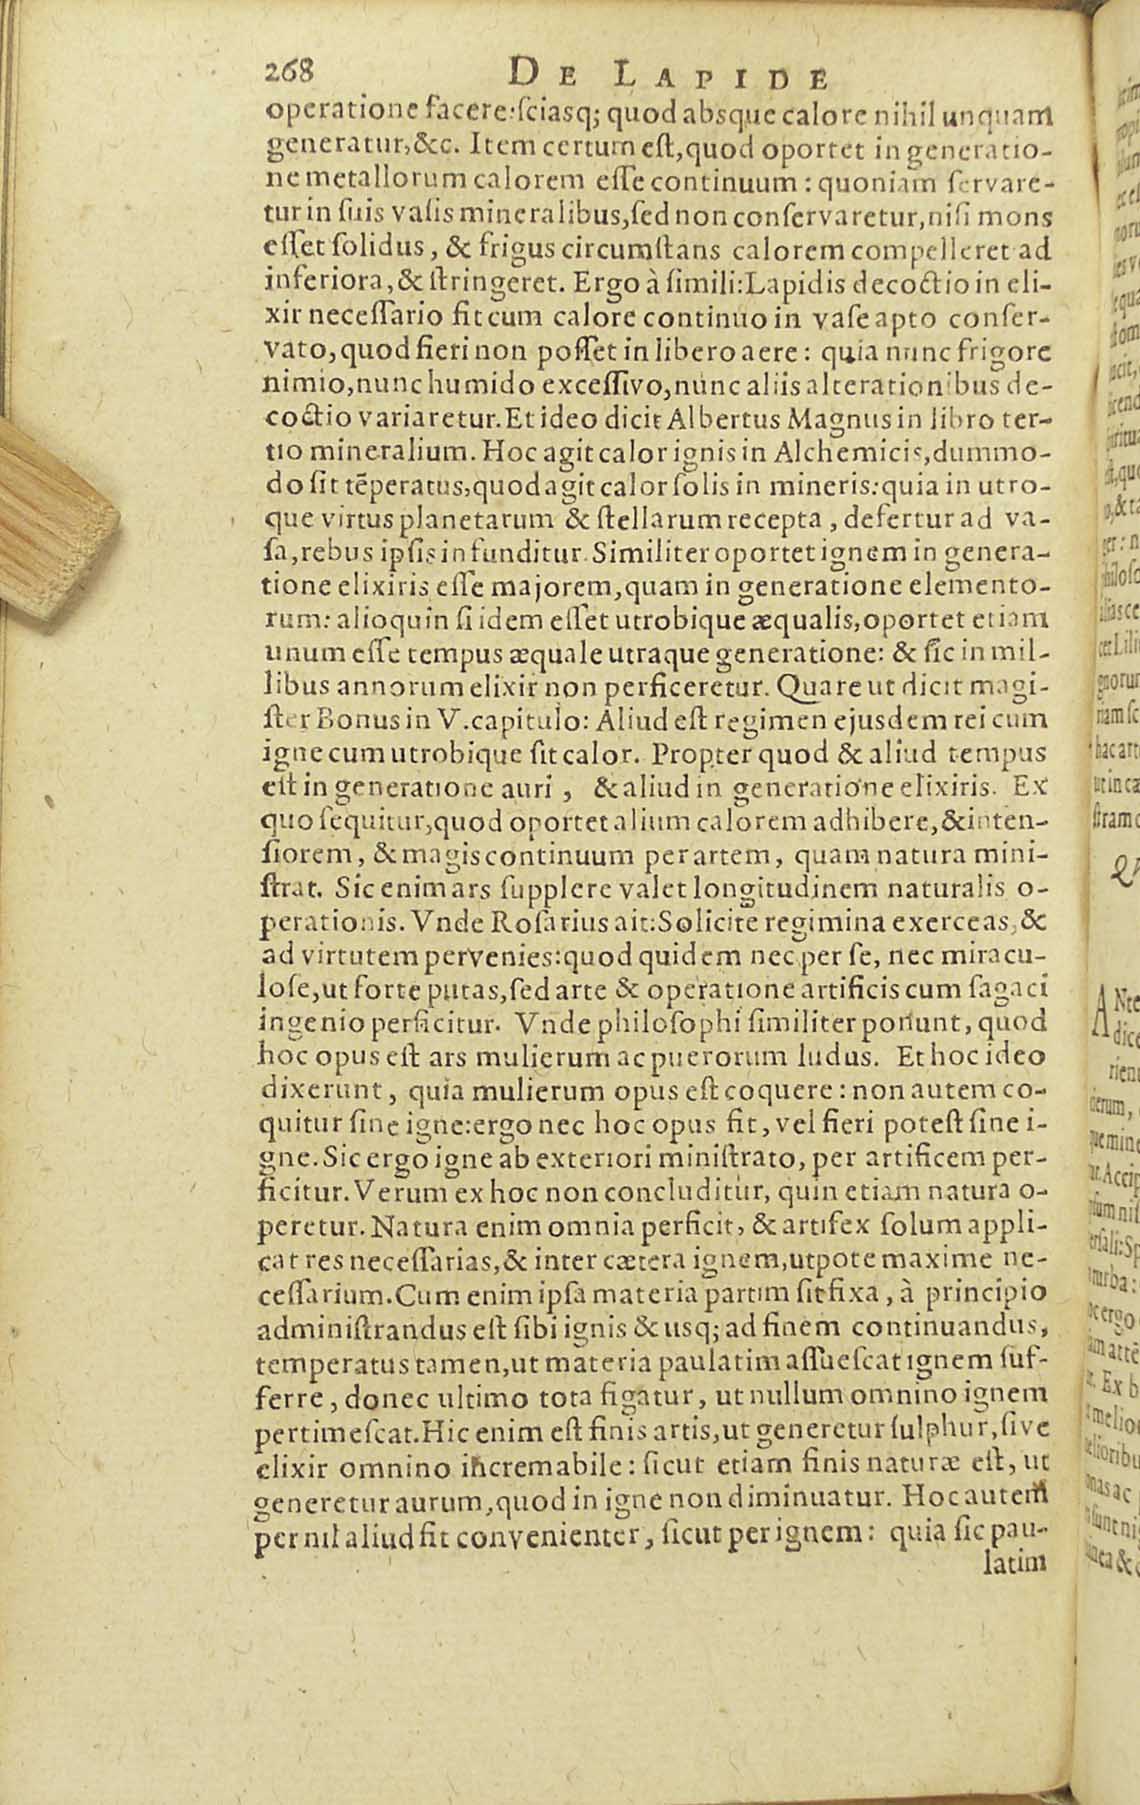 268 DE LAPIDE
operatione facere: ſciasq; quod absque calore nihil unquam
generatur, &c. Item certum eſt, quod oportet in generatio-
ne metallorum calorem eſſe continuum: quoniam ſervare-
tur in ſuis vaſis mineralibus, ſed non conſervaretur, niſi mons
eſſet ſolidus, & frigus circumſtans calorem compelleret ad
inferiora, & ſtringeret. Ergo à ſimili: Lapidis decoctio in eli-
xir neceſſario fit cum calore continuo in vaſe apto conſer-
vato, quod fieri non poſſet in libero aere: quia nunc frigore
nimio, nunc humido exceſſivo, nunc aliis alterationibus de-
coctio variaretur. Et ideo dicit Albertus Magnus in libro ter-
tio mineralium. Hoc agit calor ignis in Alchemicis, dummo-
do ſit tēperatus, quod agit calor ſolis in mineris: quia in utro-
que virtus planetarum & ſtellarum recepta, defertur ad va-
ſa, rebus ipſis infunditur. Similiter oportet ignem in genera-
tione elixiris eſſe majorem, quam in generatione elemento-
rum: alioquin ſi idem eſſet utrobique æqualis, oportet etiam
unum eſſe tempus æquale utraque generatione: & ſic in mil-
libus annorum elixir non perficeretur. Quare ut dicit magi-
ſter Bonus in V. capitulo: Aliud eſt regimen ejusdem rei cum
igne cum utrobique ſit calor. Propter quod & aliud tempus
eſt in generatione auri, & aliud in generatione elixiris. Ex
quo ſequitur, quod oportet alium calorem adhibere, & inten-
ſiorem, & magis continuum per artem, quam natura mini-
ſtrat. Sic enim ars ſupplere valet longitudinem naturalis o-
perationis. Vnde Roſarius ait: Solicite regimina exerceas, &
ad virtutem pervenies: quod quidem nec per ſe, nec miracu-
loſe, ut forte putas, ſed arte & operatione artificis cum ſagaci
ingenio perficitur. Vnde philoſophi ſimiliter ponunt, quod
hoc opus eſt ars mulierum ac puerorum ludus. Et hoc ideo
dixerunt, quia mulierum opus eſt coquere: non autem co-
quitur ſine igne: ergo nec hoc opus fit, vel fieri poteſt ſine i-
gne. Sic ergo igne ab exteriori miniſtrato, per artificem per-
ficitur. Verum ex hoc non concluditur, quin etiam natura o-
peretur. Natura enim omnia perficit, & artifex ſolum appli-
cat res neceſſarias, & inter cætera ignem, utpote maxime ne-
ceſſarium. Cum enim ipſa materia partim ſit fixa, à principio
adminiſtrandus eſt ſibi ignis & usq; ad finem continuandus,
temperatus tamen, ut materia paulatim aſſueſcat ignem ſuf-
ferre, donec ultimo tota figatur, ut nullum omnino ignem
pertimeſcat. Hic enim eſt finis artis, ut generetur ſulphur, ſive
elixir omnino incremabile: ſicut etiam finis naturæ eſt, ut
generetur aurum, quod in igne non diminuatur. Hoc autem
per nil aliud fit convenienter, ſicut per ignem: quia ſic pau-
latim